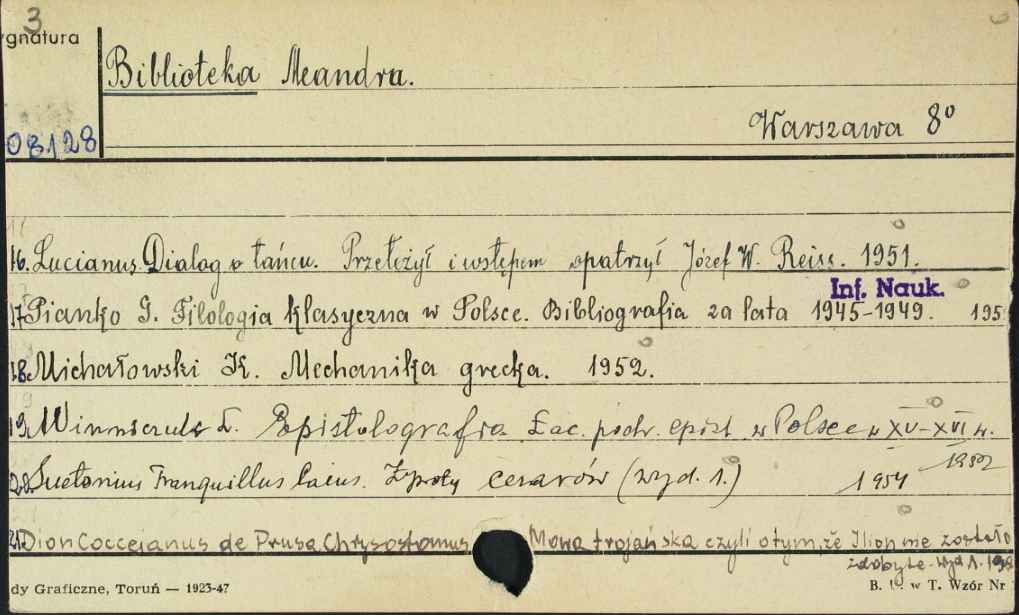 3
ygnatura
Biblioteka Meandra.
Warszawa 8°
08128
16. Lucianus. Dialog o tańcu. Przełożył i wstępem opatrzył Józef W. Reiss. 1951.
Inf. Nauk.
17 Pianko G. Filologia klasyczna w Polsce. Bibliografia za lata 1945-1949. 195
18. Michałowski K. Mechanika grecka. 1952.
19. Winniczuk L. Epistolografia Łac. podr. epist. w Polsce w XV-XVI w.
1952
20. Suetonius Tranquillus Caius. Żywoty cezarów (wyd. 1.) 1954
21. Dion Cocceianus de Prusa Chrysostomus Mowa trojańska czyli o tym, że Ilion nie zostało
zdobyte. wyd 1. 19
dy Graficzne, Toruń — 1923-47
B. U. w T. Wzór Nr